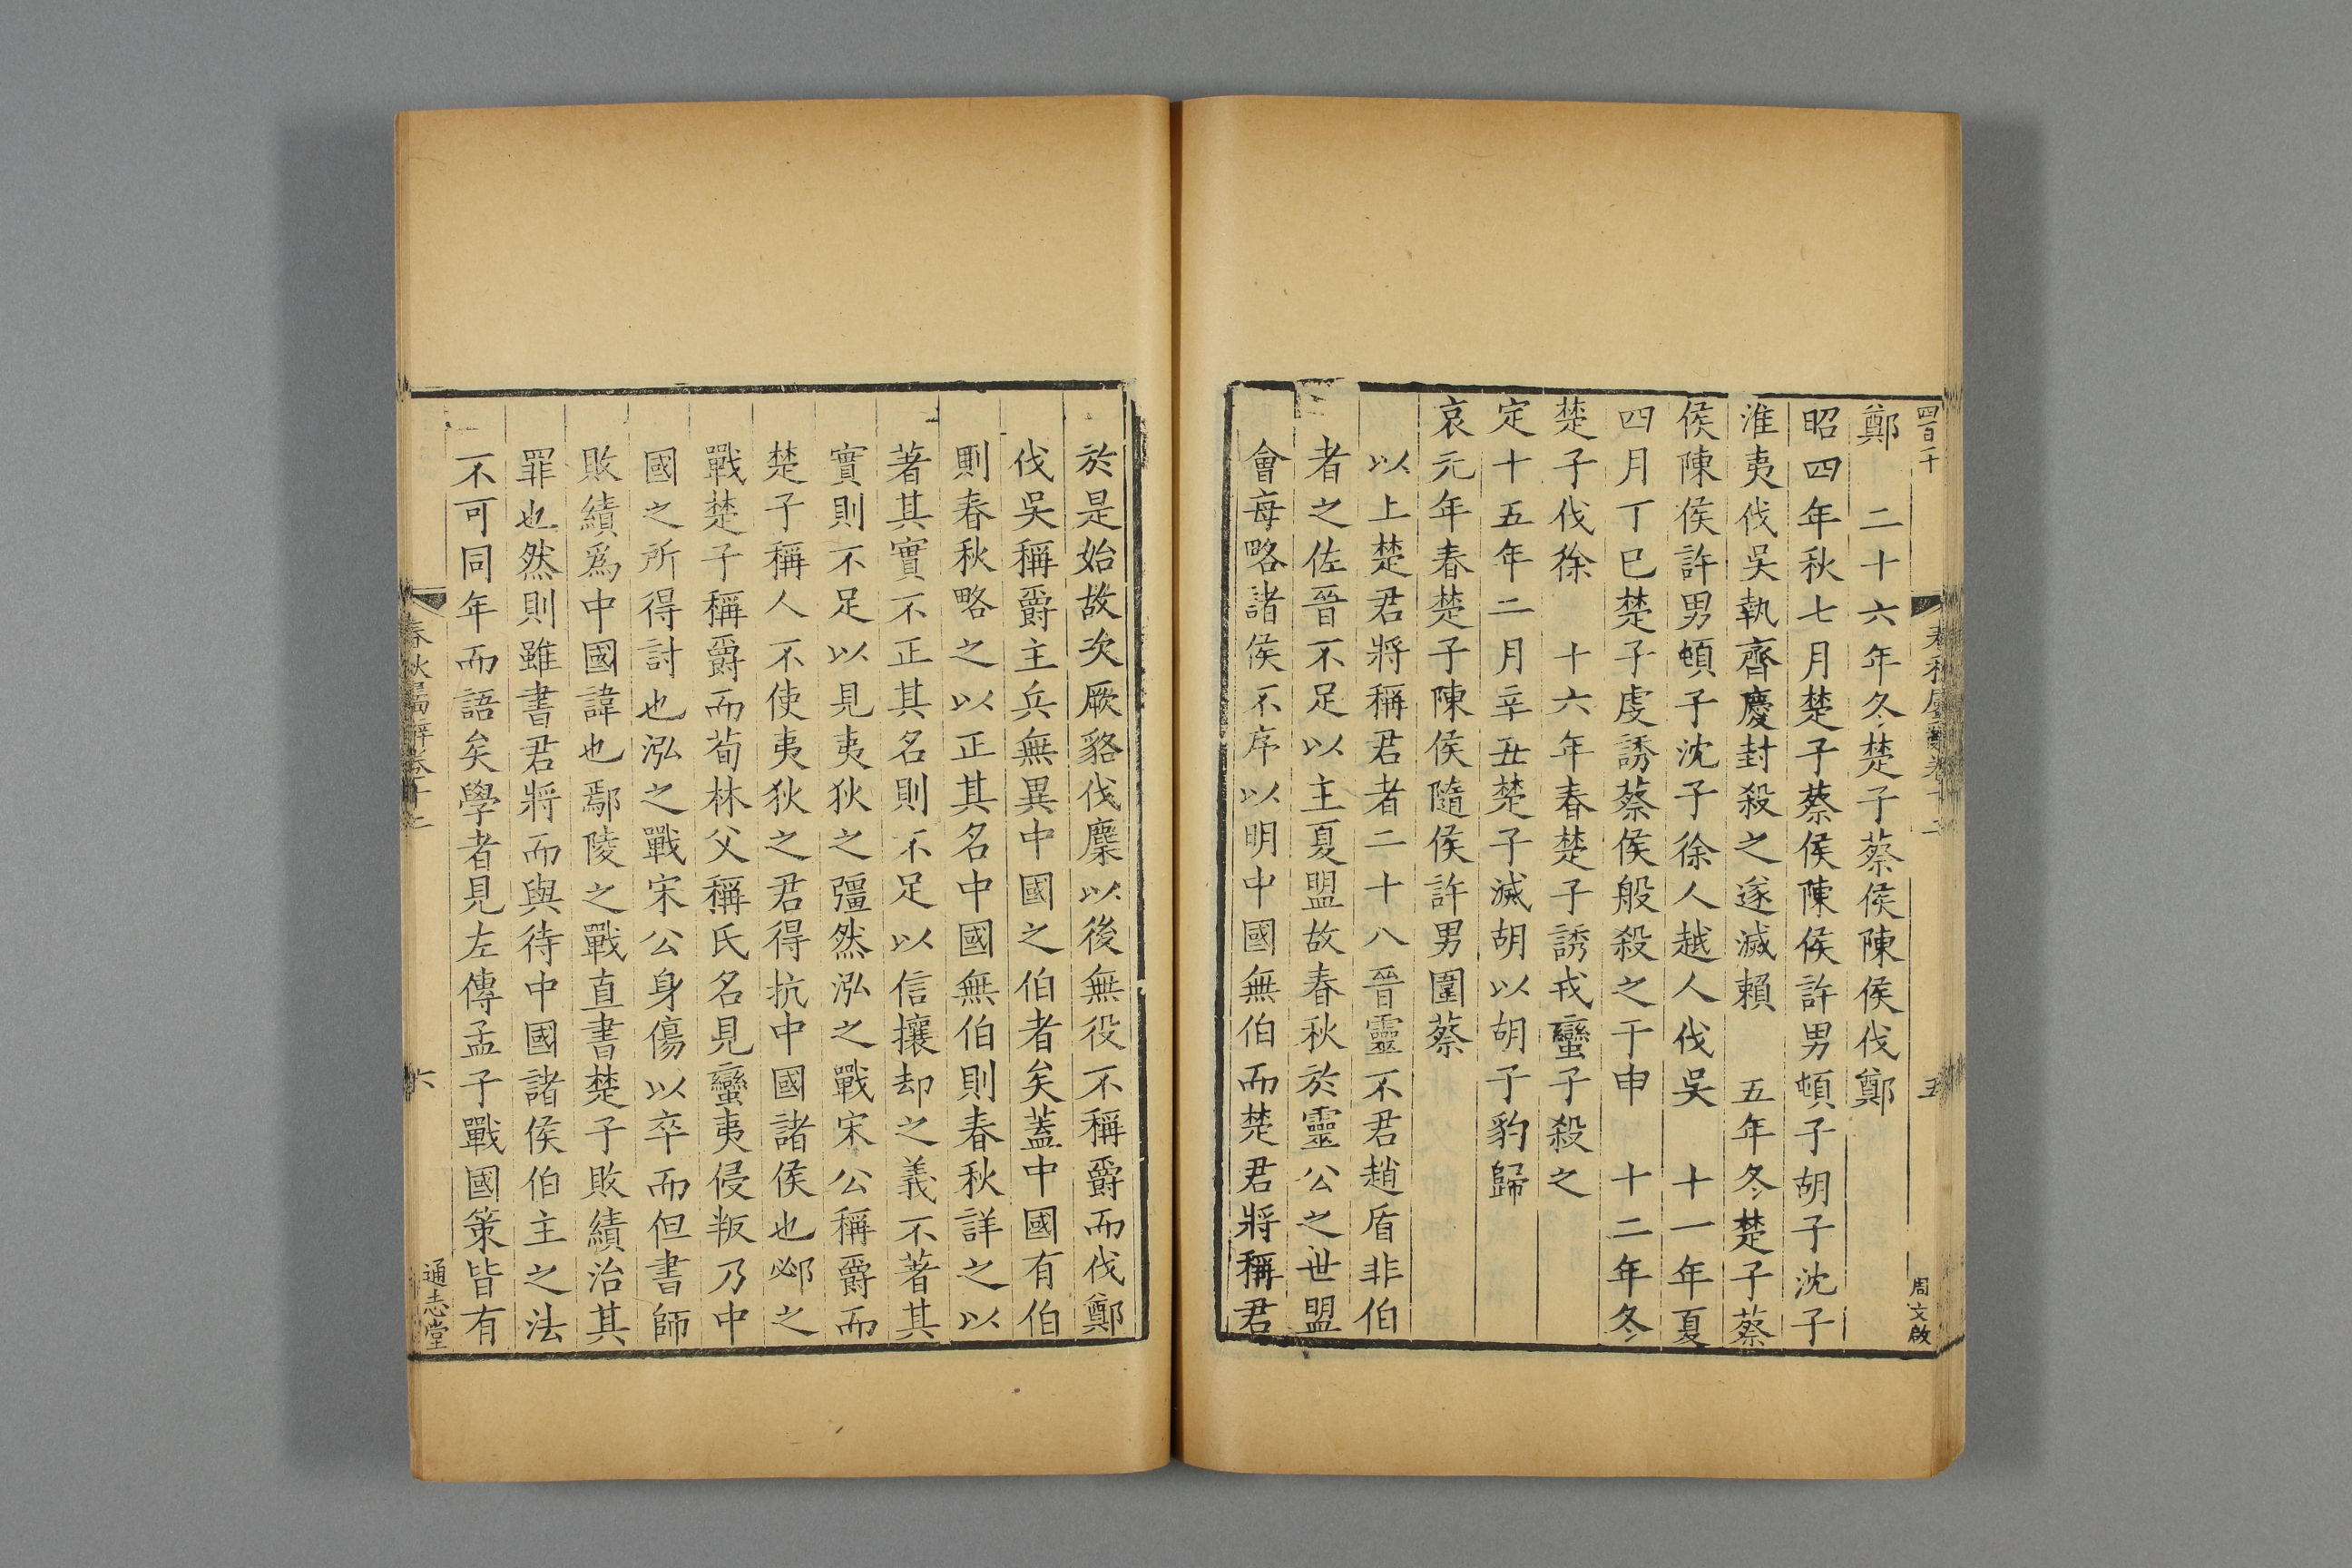 四百千
春秋屬辭卷十二
五
周文啟
鄭 二十六年冬楚子蔡侯陳侯伐鄭
昭四年秋七月楚子蔡侯陳侯許男頓子胡子沈子
淮夷伐吳執齊慶封殺之遂滅賴 五年冬楚子蔡
侯陳侯許男頓子沈子徐人越人伐吳 十一年夏
四月丁巳楚子虔誘蔡侯般殺之于申 十二年冬
楚子伐徐 十六年春楚子誘戎蠻子殺之
定十五年二月辛丑楚子滅胡以胡子豹歸
哀元年春楚子陳侯隨侯許男圍蔡
以上楚君將稱君者二十八晉靈不君趙盾非伯
者之佐晉不足以主夏盟故春秋於靈公之世盟
會每略諸侯不序以明中國無伯而楚君將稱君
於是始故次厥貉伐麇以後無役不稱爵而伐鄭
伐吳稱爵主兵無異中國之伯者矣蓋中國有伯
則春秋略之以正其名中國無伯則春秋詳之以
著其實不正其名則不足以信攘却之義不著其
實則不足以見夷狄之彊然泓之戰宋公稱爵而
楚子稱人不使夷狄之君得抗中國諸侯也邲之
戰楚子稱爵而荀林父稱氏名見蠻夷侵叛乃中
國之所得討也泓之戰宋公身傷以卒而但書師
敗績爲中國諱也鄢陵之戰直書楚子敗績治其
罪也然則雖書君將而與待中國諸侯伯主之法
不可同年而語矣學者見左傳孟子戰國策皆有
春秋屬辭卷十二
六
通志堂